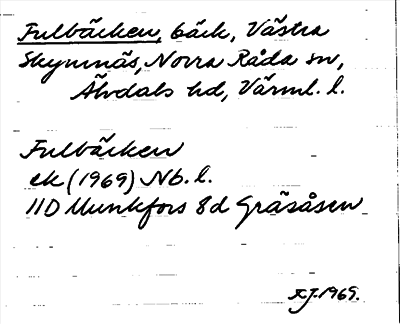 Fulbäcken, bäck, Västra
Skymnäs, Norra Råda sn,
Älvdals hd, Värml. l.
Fulbäcken
ek (1969) Nb. l.
11D Munkfors 8d Gräsåsen
KJ. 1969.